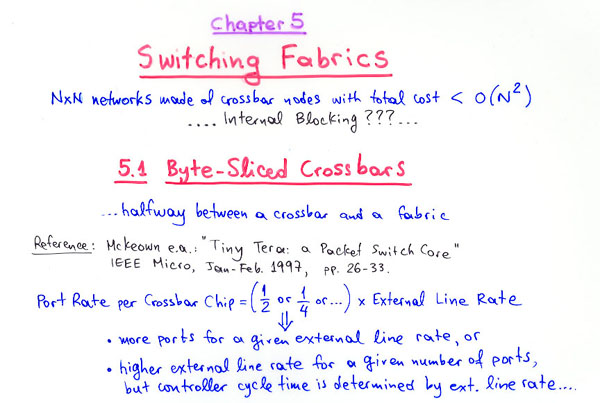 Chapter 5
Switching Fabrics
NxN networks made of crossbar nodes with total cost < O(N²)
.... Internal Blocking ???...
5.1 Byte-Sliced Crossbars
...halfway between a crossbar and a fabric
Reference: McKeown e.a.: "Tiny Tera: a Packet Switch Core"
IEEE Micro, Jan-Feb. 1997, pp. 26-33.
Port Rate per Crossbar Chip = (1/2 or 1/4 or...) x External Line Rate
⇓
• more ports for a given external line rate, or
• higher external line rate for a given number of ports,
but controller cycle time is determined by ext. line rate....